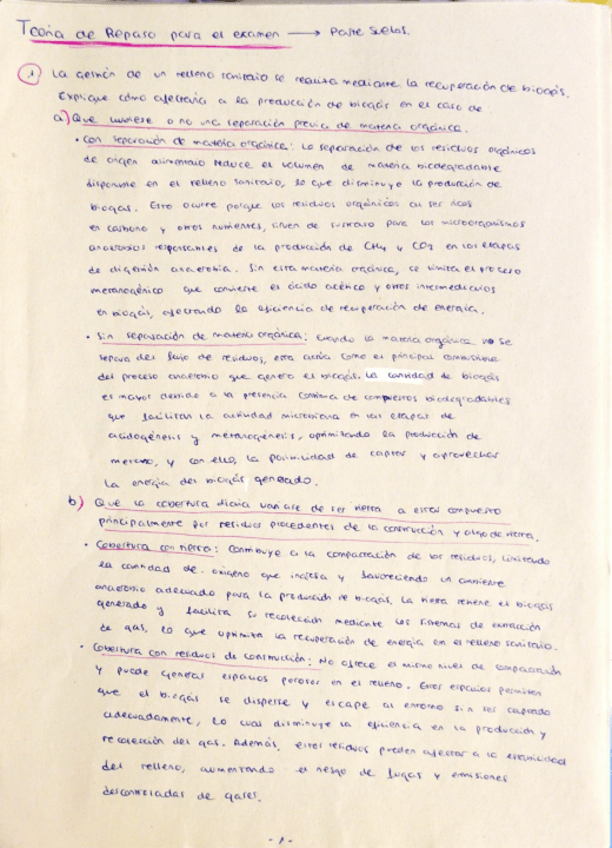 Teoría de Repaso para el examen → Parte suelos.
1) La gestión de un relleno sanitario se realiza mediante la recuperación de biogás.
Explique cómo afectaría a la producción de biogás en el caso de
a) Que hubiese o no una separación previa de materia orgánica.
• Con separación de materia orgánica: La separación de los residuos orgánicos
de origen alimentario reduce el volumen de materia biodegradable
disponible en el relleno sanitario, lo que disminuye la producción de
biogás. Esto ocurre porque los residuos orgánicos al ser ricos
en carbono y otros nutrientes, sirven de sustrato para los microorganismos
anaerobios responsables de la producción de CH4 y CO2 en las etapas
de digestión anaerobia. Sin esta materia orgánica, se limita el proceso
metanogénico que convierte el ácido acético y otros intermediarios
en biogás, afectando la eficiencia de recuperación de energía.
• Sin separación de materia orgánica: Cuando la materia orgánica no se
separa del flujo de residuos, esta actúa como el principal combustible
del proceso anaerobio que genera el biogás. La cantidad de biogás
es mayor debido a la presencia continua de compuestos biodegradables
que facilitan la actividad microbiana en las etapas de
acidogénesis y metanogénesis, optimizando la producción de
metano, y con ello, la posibilidad de captar y aprovechar
la energía del biogás generado.
b) Que la cobertura diaria variase de ser tierra a estar compuesto
principalmente por residuos procedentes de la construcción y algo de tierra.
• Cobertura con tierra: Contribuye a la compactación de los residuos, limitando
la cantidad de oxígeno que ingresa y favoreciendo un ambiente
anaerobio adecuado para la producción de biogás. La tierra retiene el biogás
generado y facilita su recolección mediante los sistemas de extracción
de gas, lo que optimiza la recuperación de energía en el relleno sanitario.
• Cobertura con residuos de construcción: No ofrece el mismo nivel de compactación
y puede generar espacios porosos en el relleno. Estos espacios permiten
que el biogás se disperse y escape al entorno sin ser captado
adecuadamente, lo cual disminuye la eficiencia en la producción y
recolección del gas. Además, estos residuos pueden afectar a la estabilidad
del relleno, aumentando el riesgo de fugas y emisiones
descontroladas de gases.
- 1 -